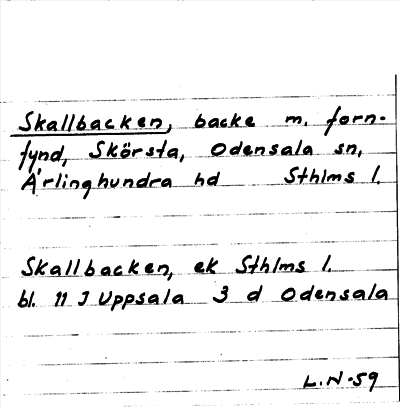 Skallbacken, backe m. forn-
fynd, Skörsta, Odensala sn,
Ärlinghundra hd Sthlms l.
Skallbacken, ek Sthlms l.
bl. 11 J Uppsala 3 d Odensala
L.N-59